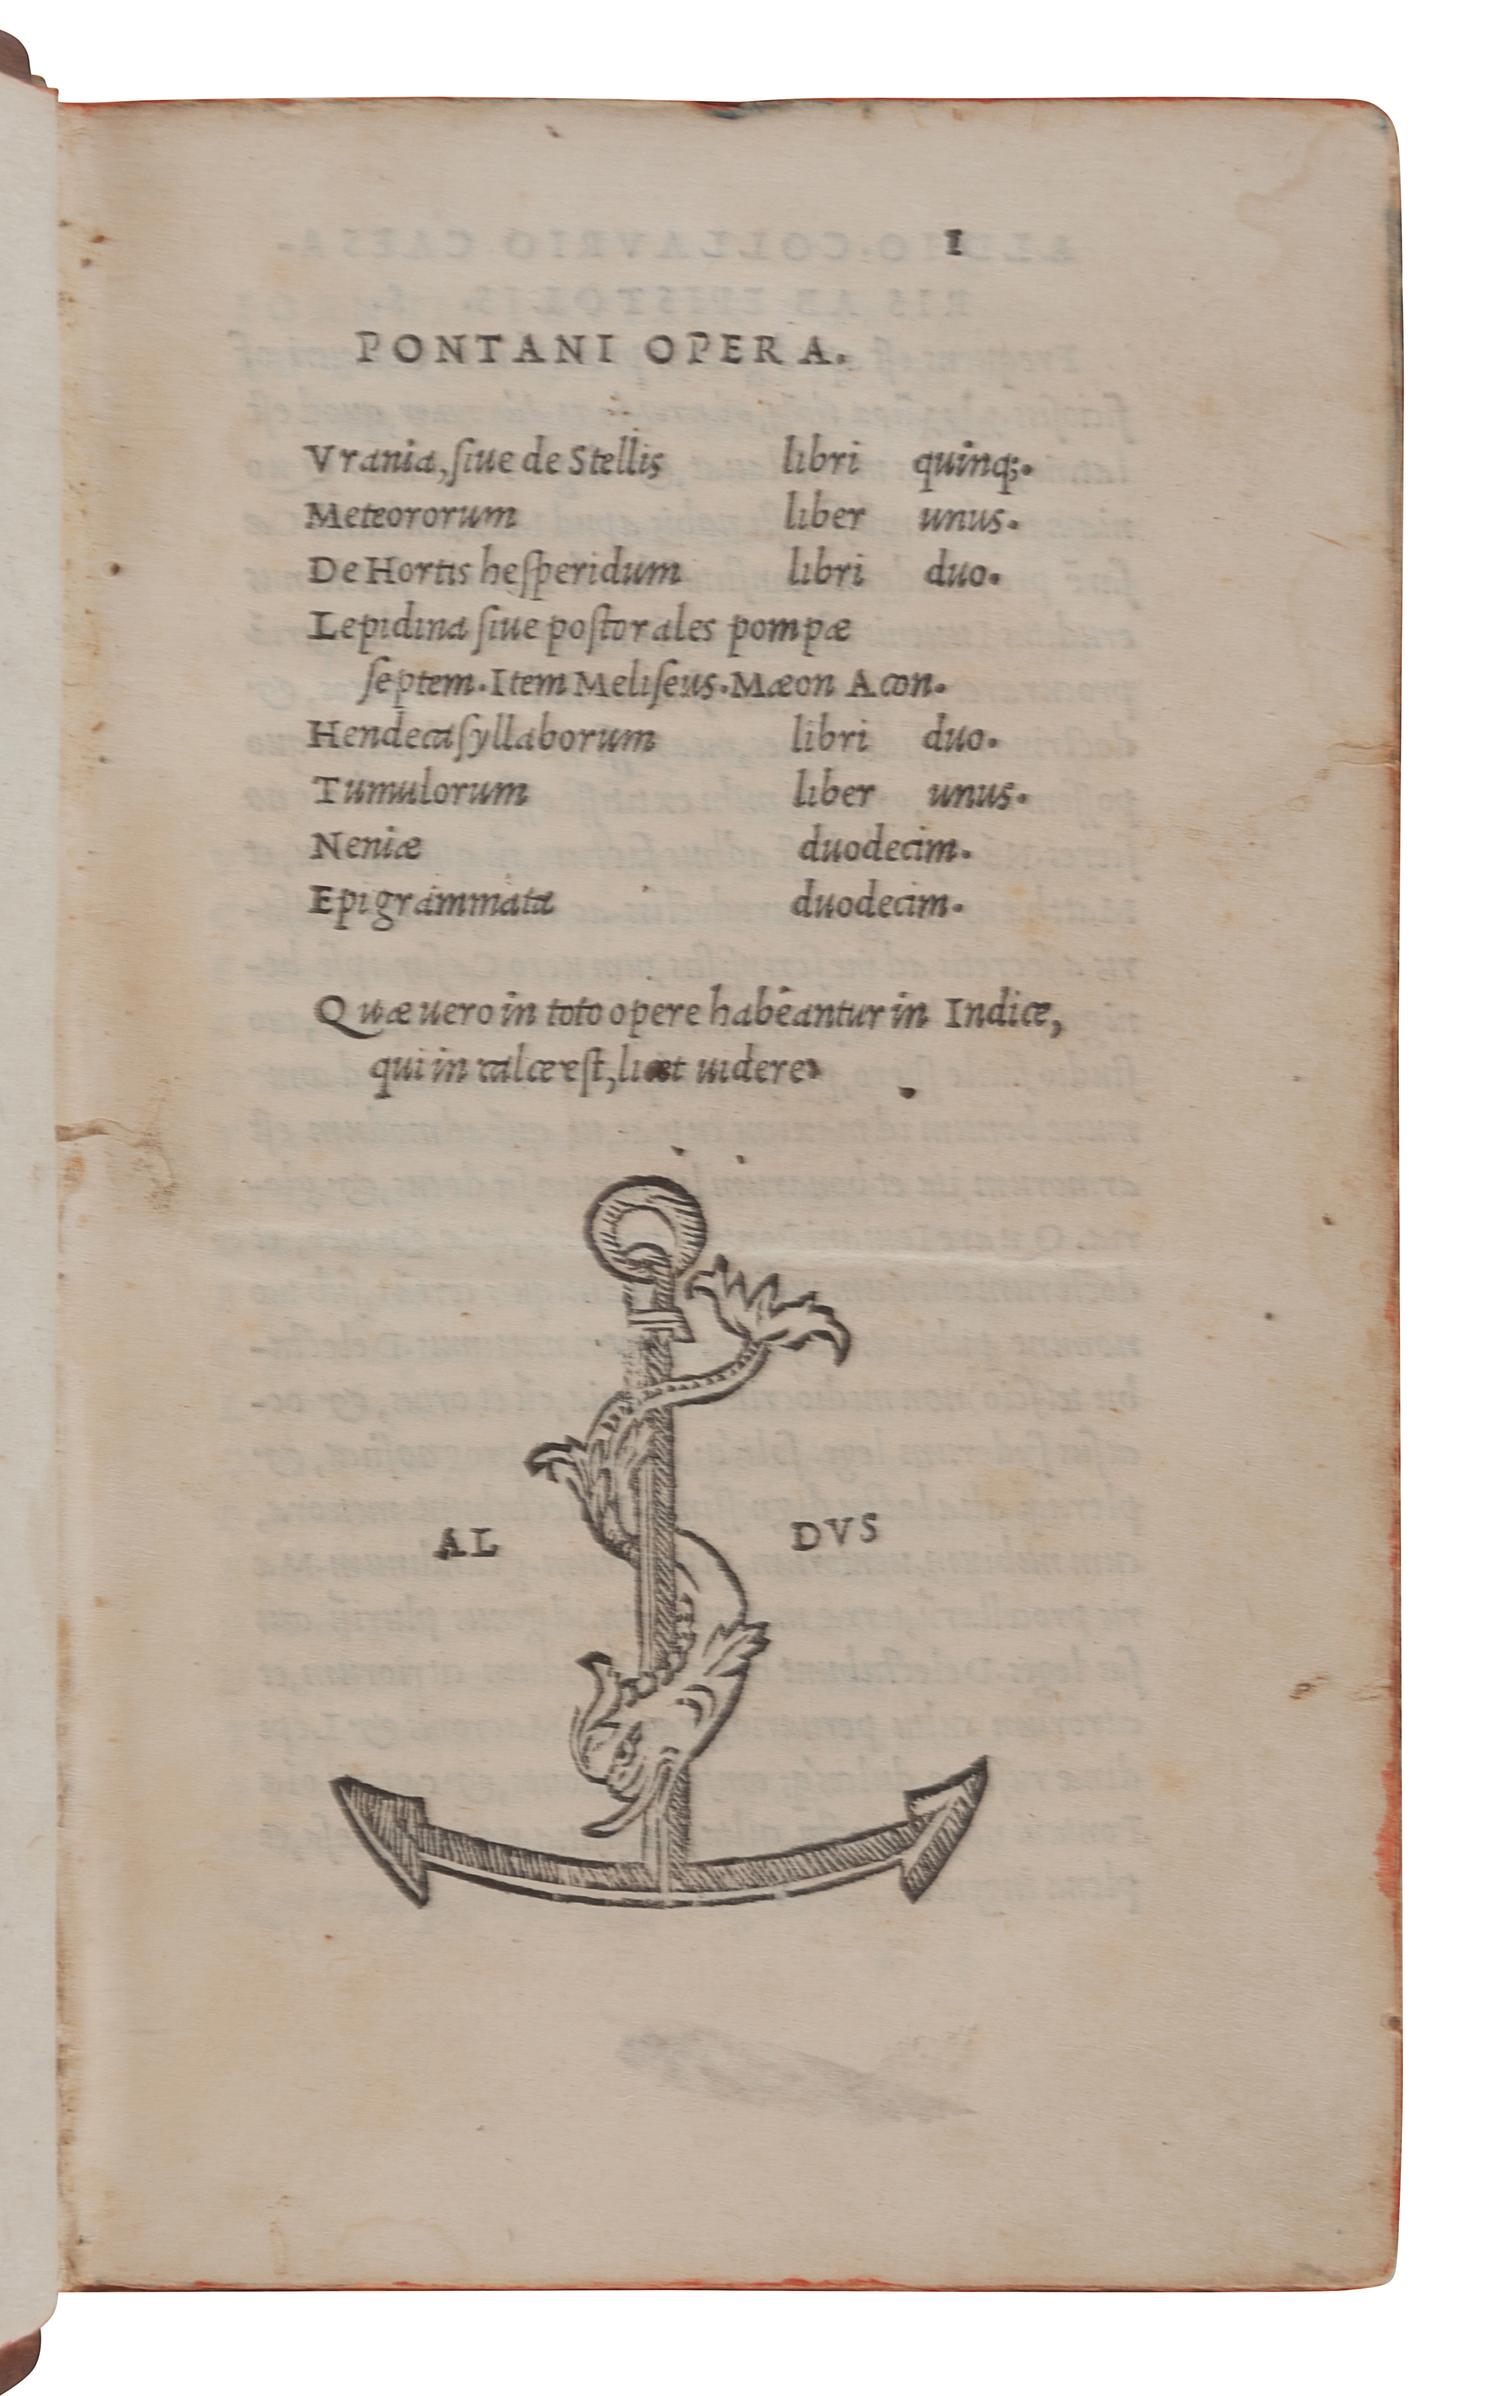 1
PONTANI OPERA.
Vrania, ſiue de Stellis libri quinq;.
Meteororum liber unus.
De Hortis heſperidum libri duo.
Lepidina ſiue poſtorales pompæ
ſeptem. Item Meliſeus. Mæon Acon.
Hendecaſyllaborum libri duo.
Tumulorum liber unus.
Neniæ duodecim.
Epigrammata duodecim.
Quæ uero in toto opere habeantur in Indice,
qui in calce eſt, licet uidere.
AL DVS